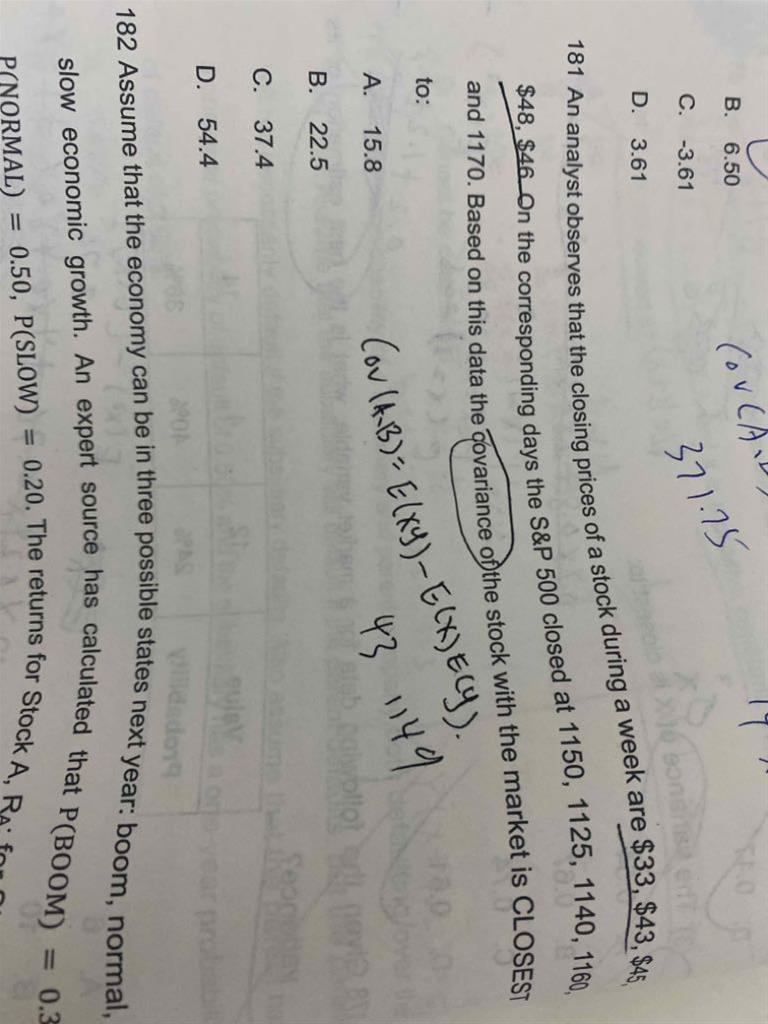 B. 6.50
C. -3.61
D. 3.61
371.75
181 An analyst observes that the closing prices of a stock during a week are $33, $43, $45,
$48, $46. On the corresponding days the S&P 500 closed at 1150, 1125, 1140, 1160,
and 1170. Based on this data the covariance of the stock with the market is CLOSEST
to:
A. 15.8
B. 22.5
C. 37.4
D. 54.4
Cov (A,B) = E(xy) - E(x) E(y).
43 1149
182 Assume that the economy can be in three possible states next year: boom, normal,
slow economic growth. An expert source has calculated that P(BOOM) = 0.3
P(NORMAL) = 0.50, P(SLOW) = 0.20. The returns for Stock A,